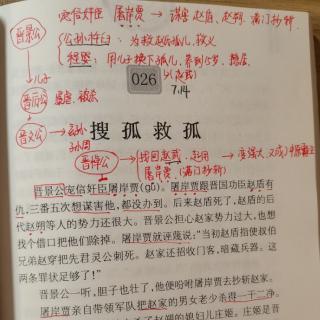 宠信奸臣 屠岸贾 → 谋害 赵盾、赵朔，满门抄斩
晋景公
公孙杵臼：为救赵氏孤儿，就义
程婴：用儿子换下孤儿，养到15岁，隐居
儿子
(赵武)
026
7.14
晋厉公 被杀
晋文公
孙周
搜孤救孤
晋悼公
找回赵武
屠岸贾（满门抄斩）
晋景公宠信奸臣屠岸贾（gǔ）。屠岸贾跟晋国功臣赵盾有
仇，三番五次想谋害他，都没办到。后来赵盾死了，赵盾的后
代赵朔等人的势力还很大。晋景公担心赵家势力过大，也想
找个借口把他们除掉。屠岸贾就诬蔑说：“当初赵盾指使叔伯
兄弟赵穿把先君灵公刺死。赵家还招收门客，暗藏兵器。这
两条罪状足够了！”
晋景公一听，胆子也壮了，他便吩咐屠岸贾去抄斩赵家。
屠岸贾亲自带领军队把赵家的男女老少杀得一干二净。
赵朔的媳妇儿庄姬。庄姬是晋